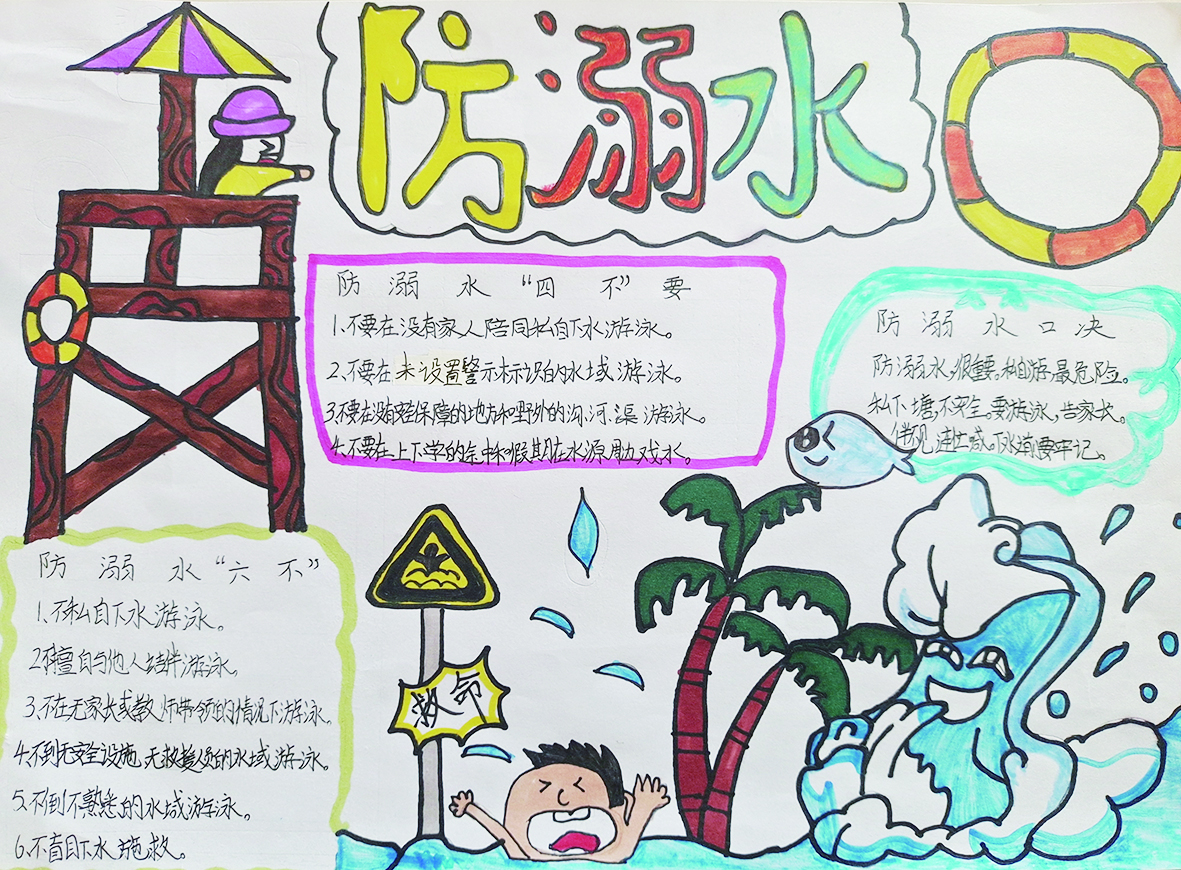 防溺水
防溺水“四不”要
1、不要在没有家人陪同私自下水游泳。
2、不要在未设置警示标识的水域游泳。
3、不要在没有安全保障的地方和野外的沟、河、渠游泳。
4、不要在上下学的途中和假期在水源周边戏水。
防溺水口决
防溺水,很重要。私自游,最危险。
私下塘,不安全。要游泳,告家长。
伴,喊。要牢记。
防溺水“六不”
1、不私自下水游泳。
2、不擅自与他人结伴游泳。
3、不在无家长或教师带领的情况下游泳。
4、不到无安全设施、无救援人员的水域游泳。
5、不到不熟悉的水域游泳。
6、不盲目下水施救。
救命